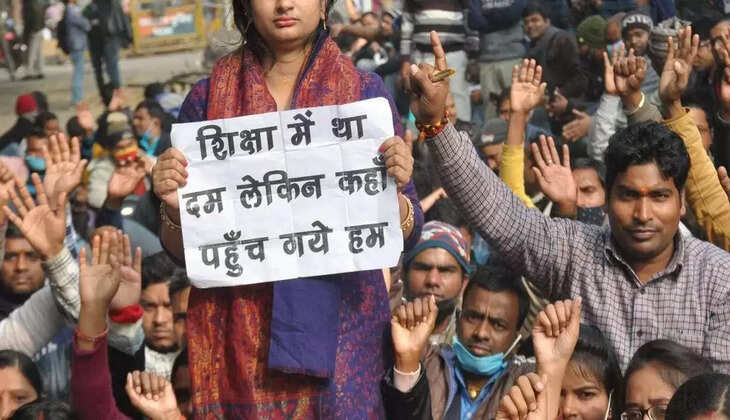 शिक्षा में था
दम लेकिन कहाँ
पहुँच गये हम